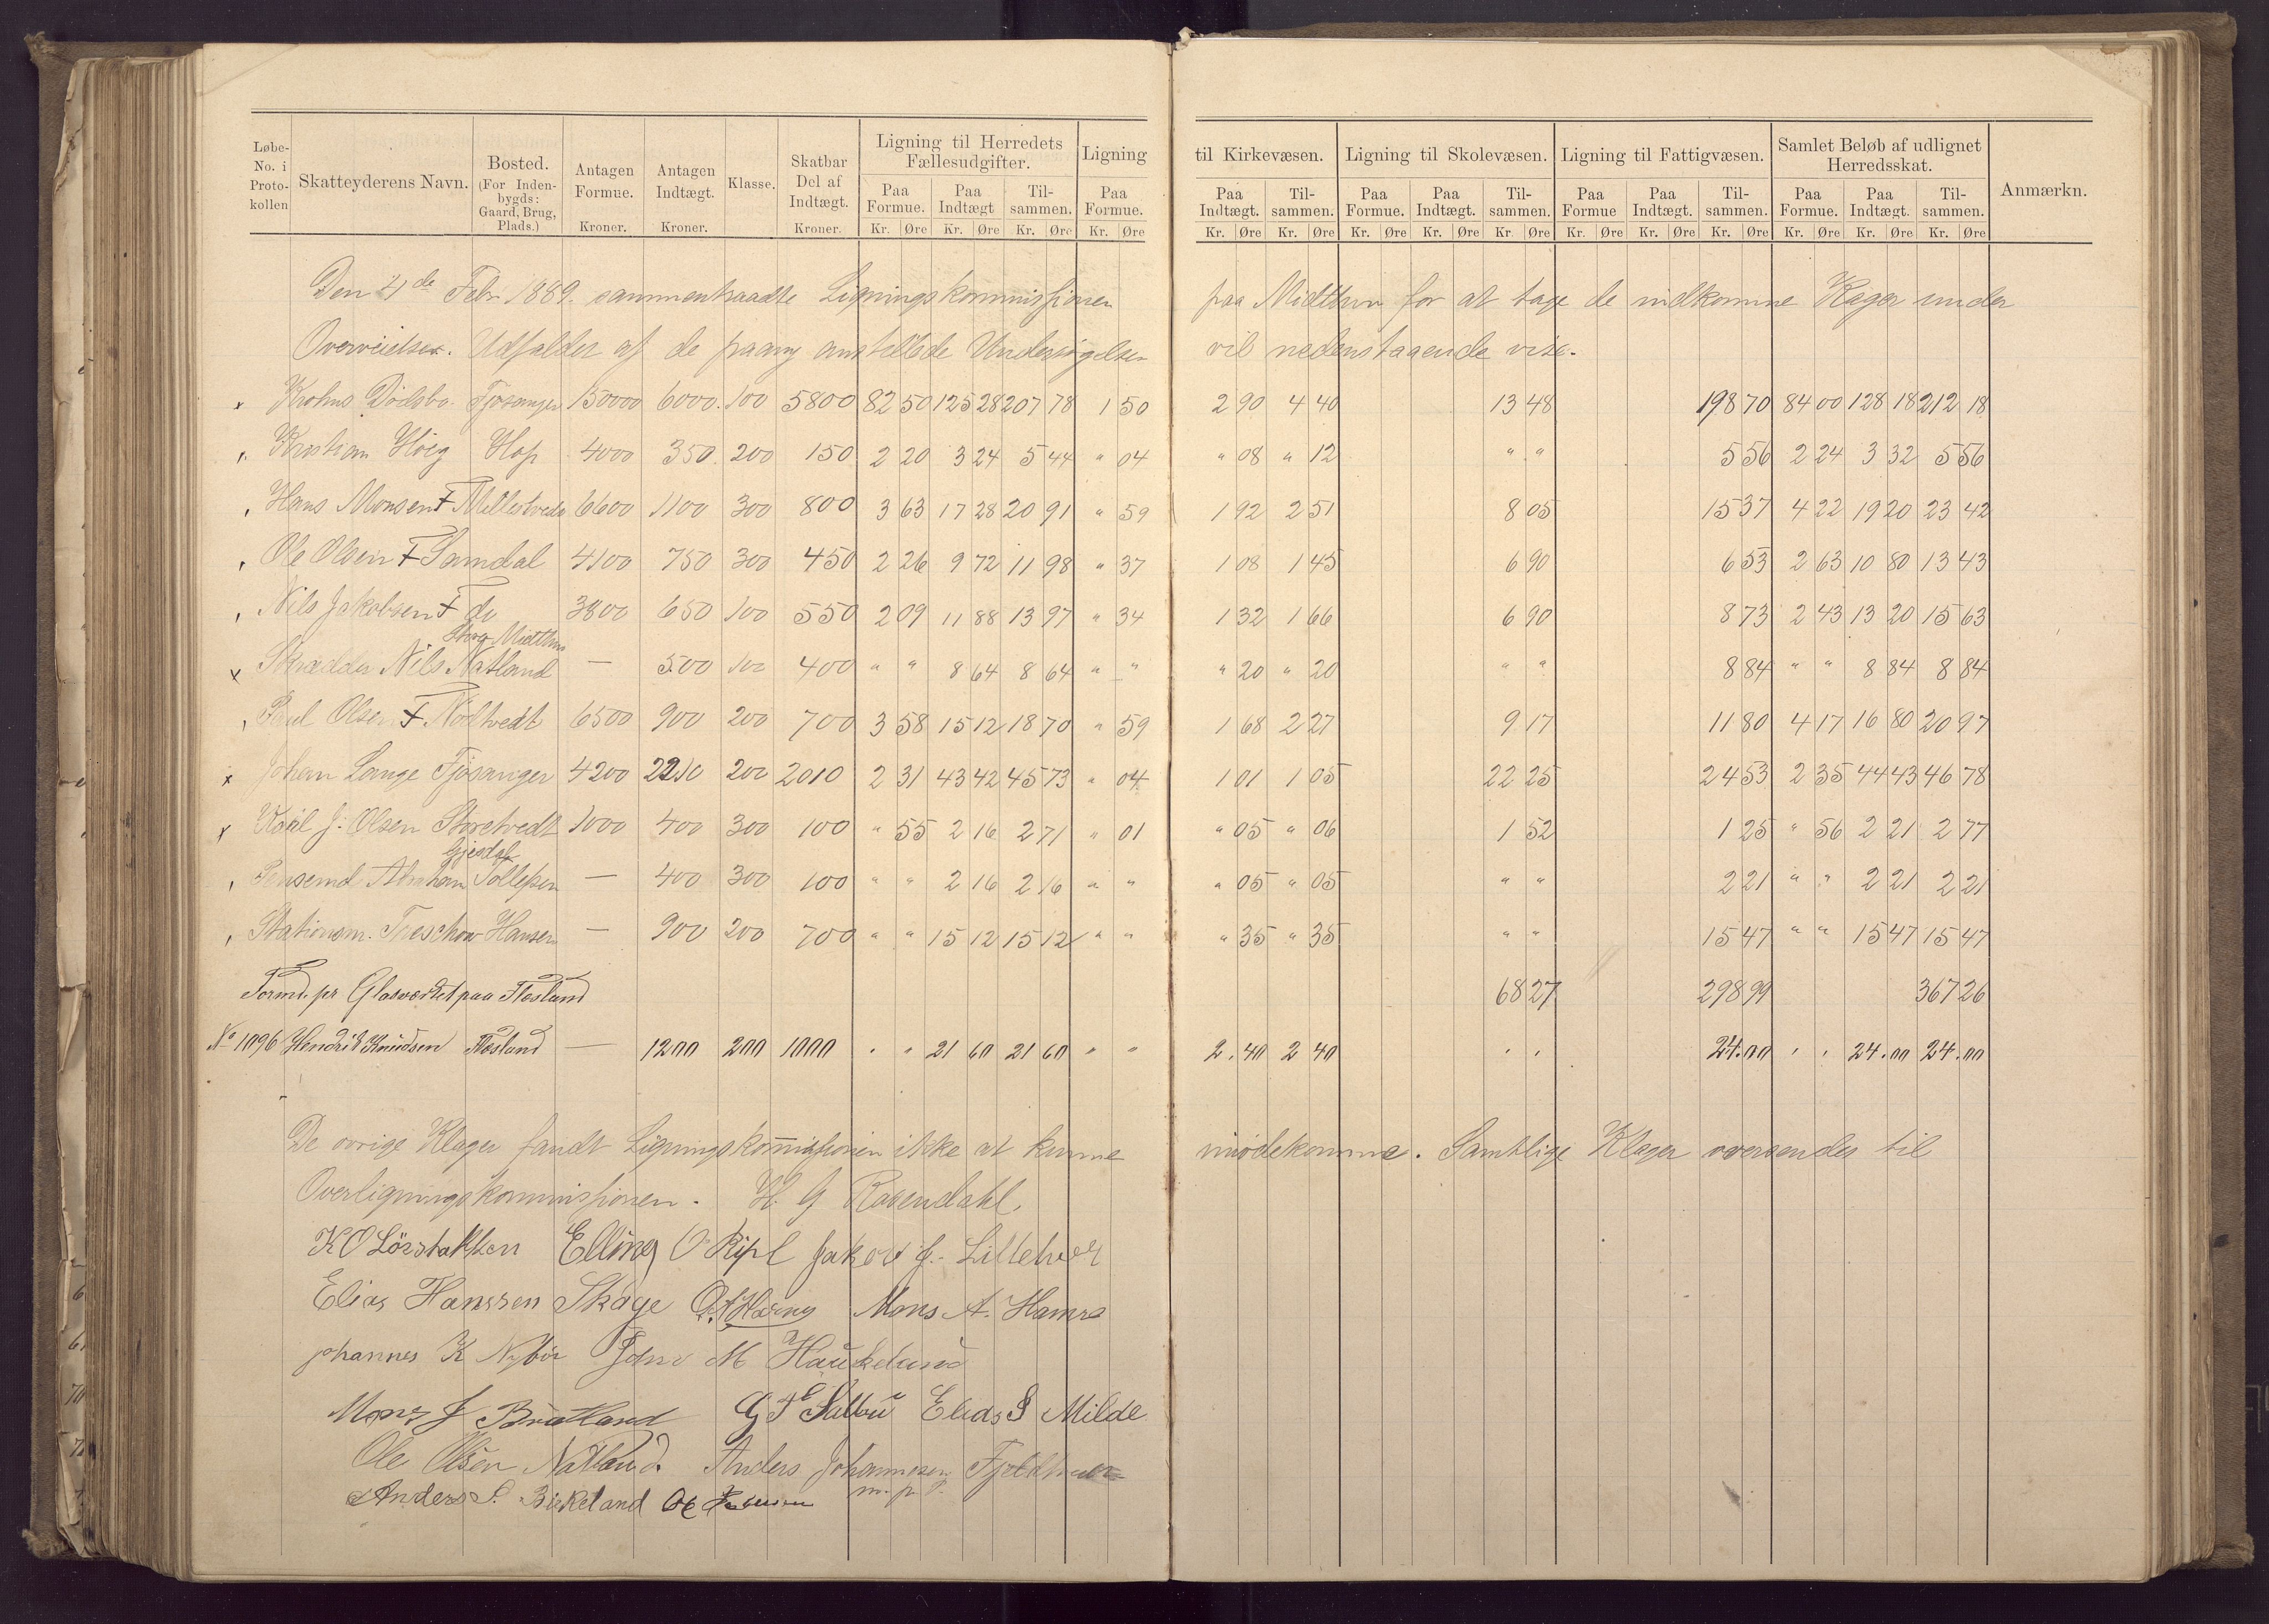 Løbe-No. i Proto-kollen | Skatteyderens Navn. | Bosted. (For Inden-bygds: Gaard, Brug, Plads.) | Antagen Formue. Kroner. | Antagen Indtægt. Kroner. | Klasse. | Skatbar Del af Indtægt. Kroner. | Ligning til Herredets Fællesudgifter. Paa Formue. Kr. Øre | Paa Indtægt Kr. Øre | Til-sammen. Kr. Øre | Ligning Paa Formue. Kr. Øre | til Kirkevæsen. Paa Indtægt. Kr. Øre | Til-sammen. Kr. Øre | Ligning til Skolevæsen. Paa Formue. Kr. Øre | Paa Indtægt. Kr. Øre | Til-sammen. Kr. Øre | Ligning til Fattigvæsen. Paa Formue Kr. Øre | Paa Indtægt. Kr. Øre | Til-sammen. Kr. Øre | Samlet Beløb af udlignet Herredsskat. Paa Formue. Kr. Øre | Paa Indtægt. Kr. Øre | Til-sammen. Kr. Øre | Anmærkn.
Den 4de Febr 1889. sammentraadte Ligningskommissionen paa Midthun for at tage de indkomne Klager under
Overveielse. Udfaldet af de paany anstillede Undersøgelser vil nedenstaaende vise.
x Krohns Dödsbo. Fjösanger 150000 6000. 100 5800 82 50 125 28 207 78 1 50 2 90 4 40 13 48 198 70 84 00 128 18 212 18
Kristian Höeg Hop 4000 350. 200 150 2 20 3 24 5 44 " 04 " 08 " 12 " " 5 56 2 24 3 32 5 56
Hans Monsen F Mellestvedt 6600 1100 300 800 3 63 17 28 20 91 " 59 1 92 2 51 8 05 15 37 4 22 19 20 23 42
Ole Olsen F Samdal 4100 750 300 450 2 26 9 72 11 98 " 37 1 08 1 45 6 90 6 53 2 63 10 80 13 43
Nils Jakobsen F do 3800 650 100 550 2 09 11 88 13 97 " 34 1 32 1 66 6 90 8 73 2 43 13 20 15 63
Midthun
x Skrædder Nils Natland — 500 100 400 " " 8 64 8 64 " " " 20 " 20 " " 8 84 " " 8 84 8 84
Paul Olsen F Nöttvedt 6500 900 200 700 3 58 15 12 18 70 " 59 1 68 2 27 9 17 11 80 4 17 16 80 20 97
x Johan Lange Fjösanger 4200 2210 200 2010 2 31 43 42 45 73 " 04 1 01 1 05 22 25 24 53 2 35 44 43 46 78
x Karl J. Olsen Storetvedt 1000 400 300 100 " 55 2 16 2 71 " 01 " 05 " 06 1 52 1 25 " 56 2 21 2 77
Gjesdal
Abraham Tollefsen — 400 300 100 " " 2 16 2 16 " " " 05 " 05 " " 2 21 " " 2 21 2 21
Stationsm. Treschow Hansen — 900 200 700 " " 15 12 15 12 " " " 35 " 35 " " 15 47 " " 15 47 15 47
Formd. pr Glasværket paa Flesland 68 27 298 99 367 26
No 1096 Hendrik Knudsen Flesland — 1200 200 1000 " " 21 60 21 60 " " 2.40 2 40 " " 24.00 " " 24.00 24.00
De övrige Klager fandt Ligningskommissionen ikke at kunne imödekomme. Samtlige Klager oversendes til
Overligningskommissionen. H. G Rosendahl.
K O Lönstakken Elling O Jakob J. Lillehvet
Elias Hanssen Skage Mons A. Hamre
Johannes K Nybö John M Haukeland
Mons J Brutland G T Sælbu Elias S Milde
Ole Olsen Natland. Anders Johannesen
Anders S. Birkeland m. p. P.